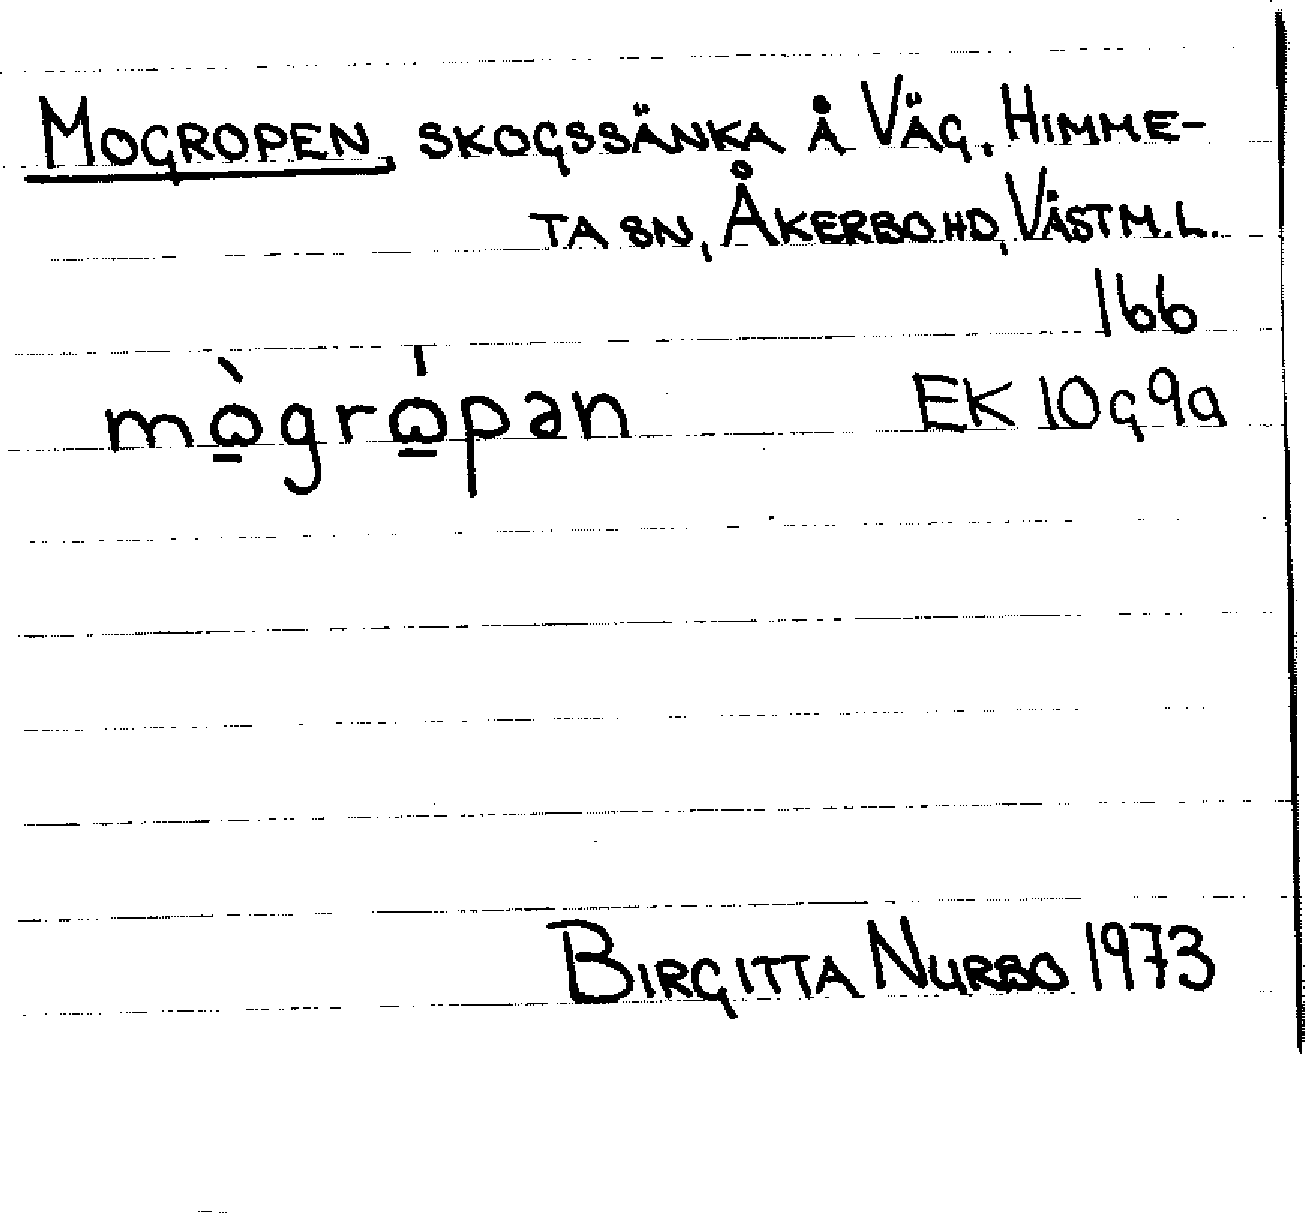 MOGROPEN, SKOGSSÄNKA Å VÄG. HIMME-
TA SN, ÅKERBO HD, VÄSTM.L.
166
mògrópən EK 10G9a
BIRGITTA NURBO 1973